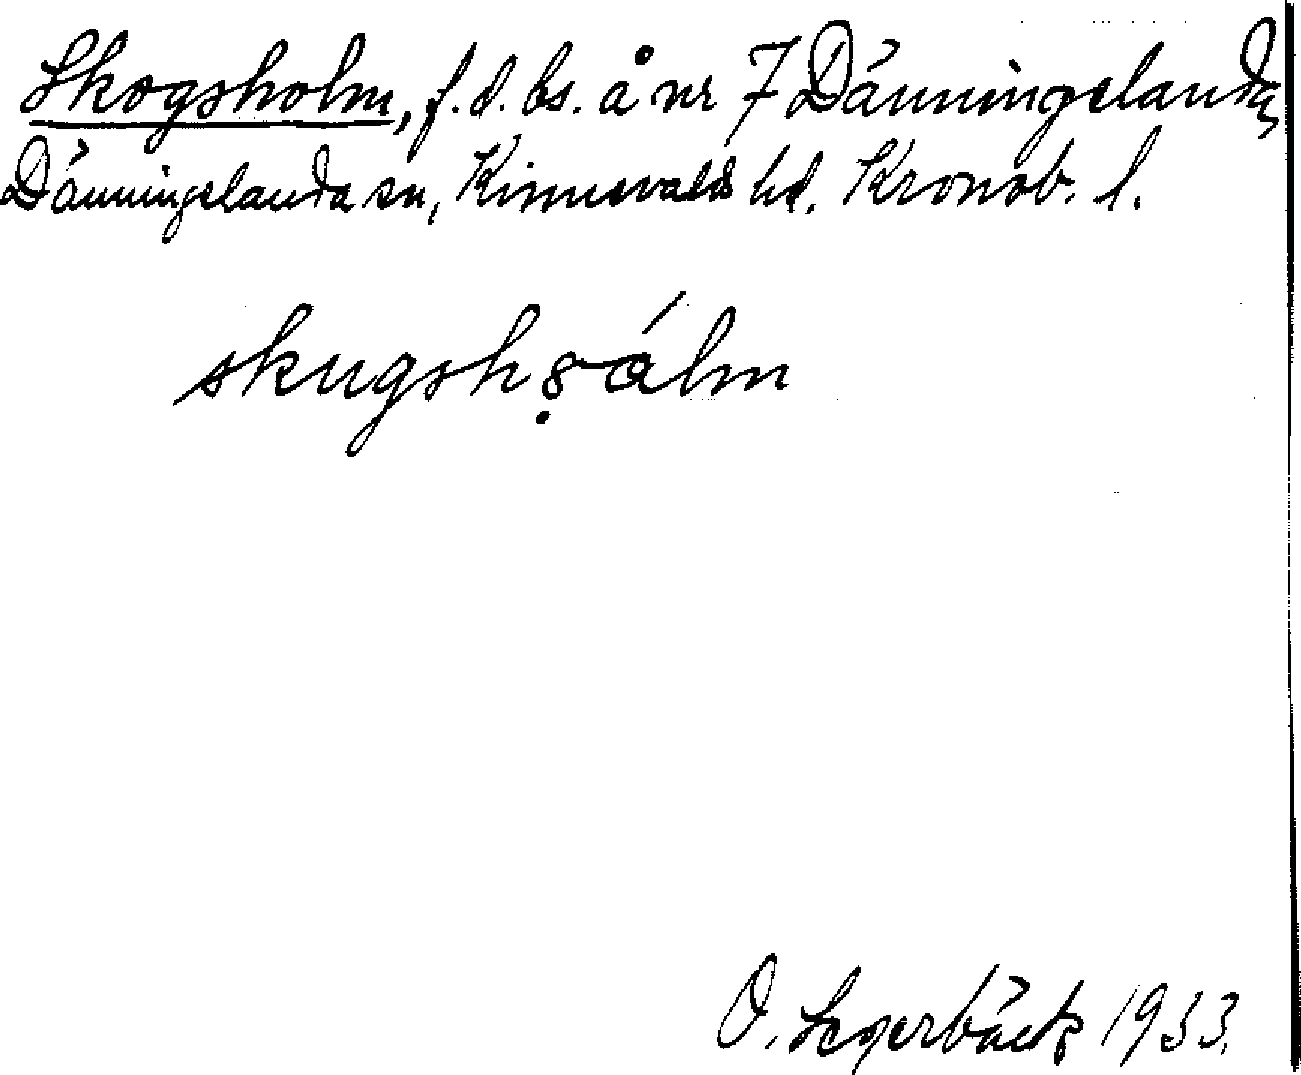 Skogsholm, f.d. bs. å nr 7 Dänningelanda,
Dänningelanda sn, Kinnevalds hd. Kronob. l.
O. Segerbäck 1933.